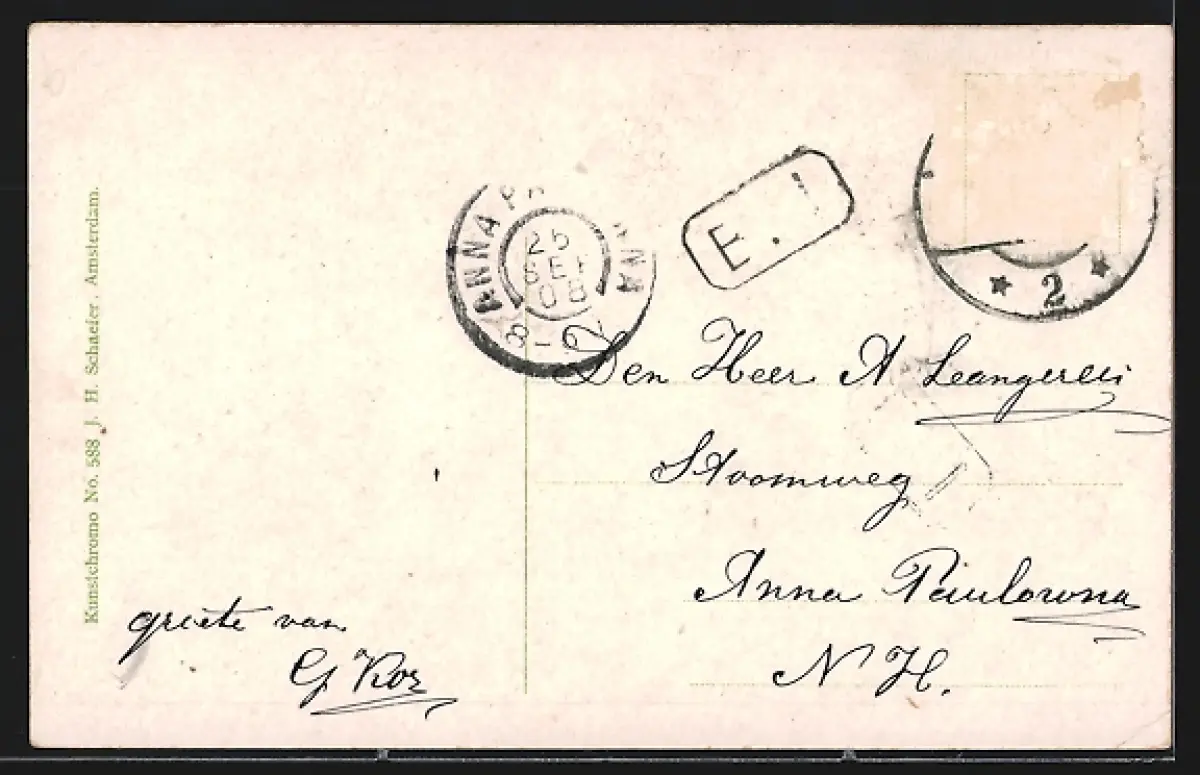 Kunstchromo No. 588 J. H. Schaefer. Amsterdam.
ANNA
25
SEP
08
8-
E. 1
* 2 *
Den Heer A
Stoomweg
Anna Paulowna
N H.
groete van